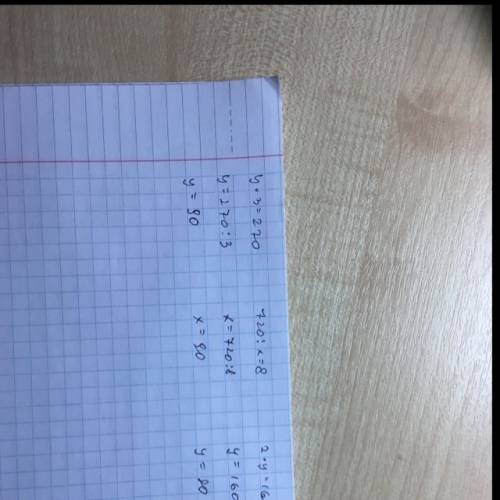 y · 3 = 270
y = 270 : 3
y = 90
720 : x = 8
x = 720 : 8
x = 90
2 · y = 16
y = 160
y = 80